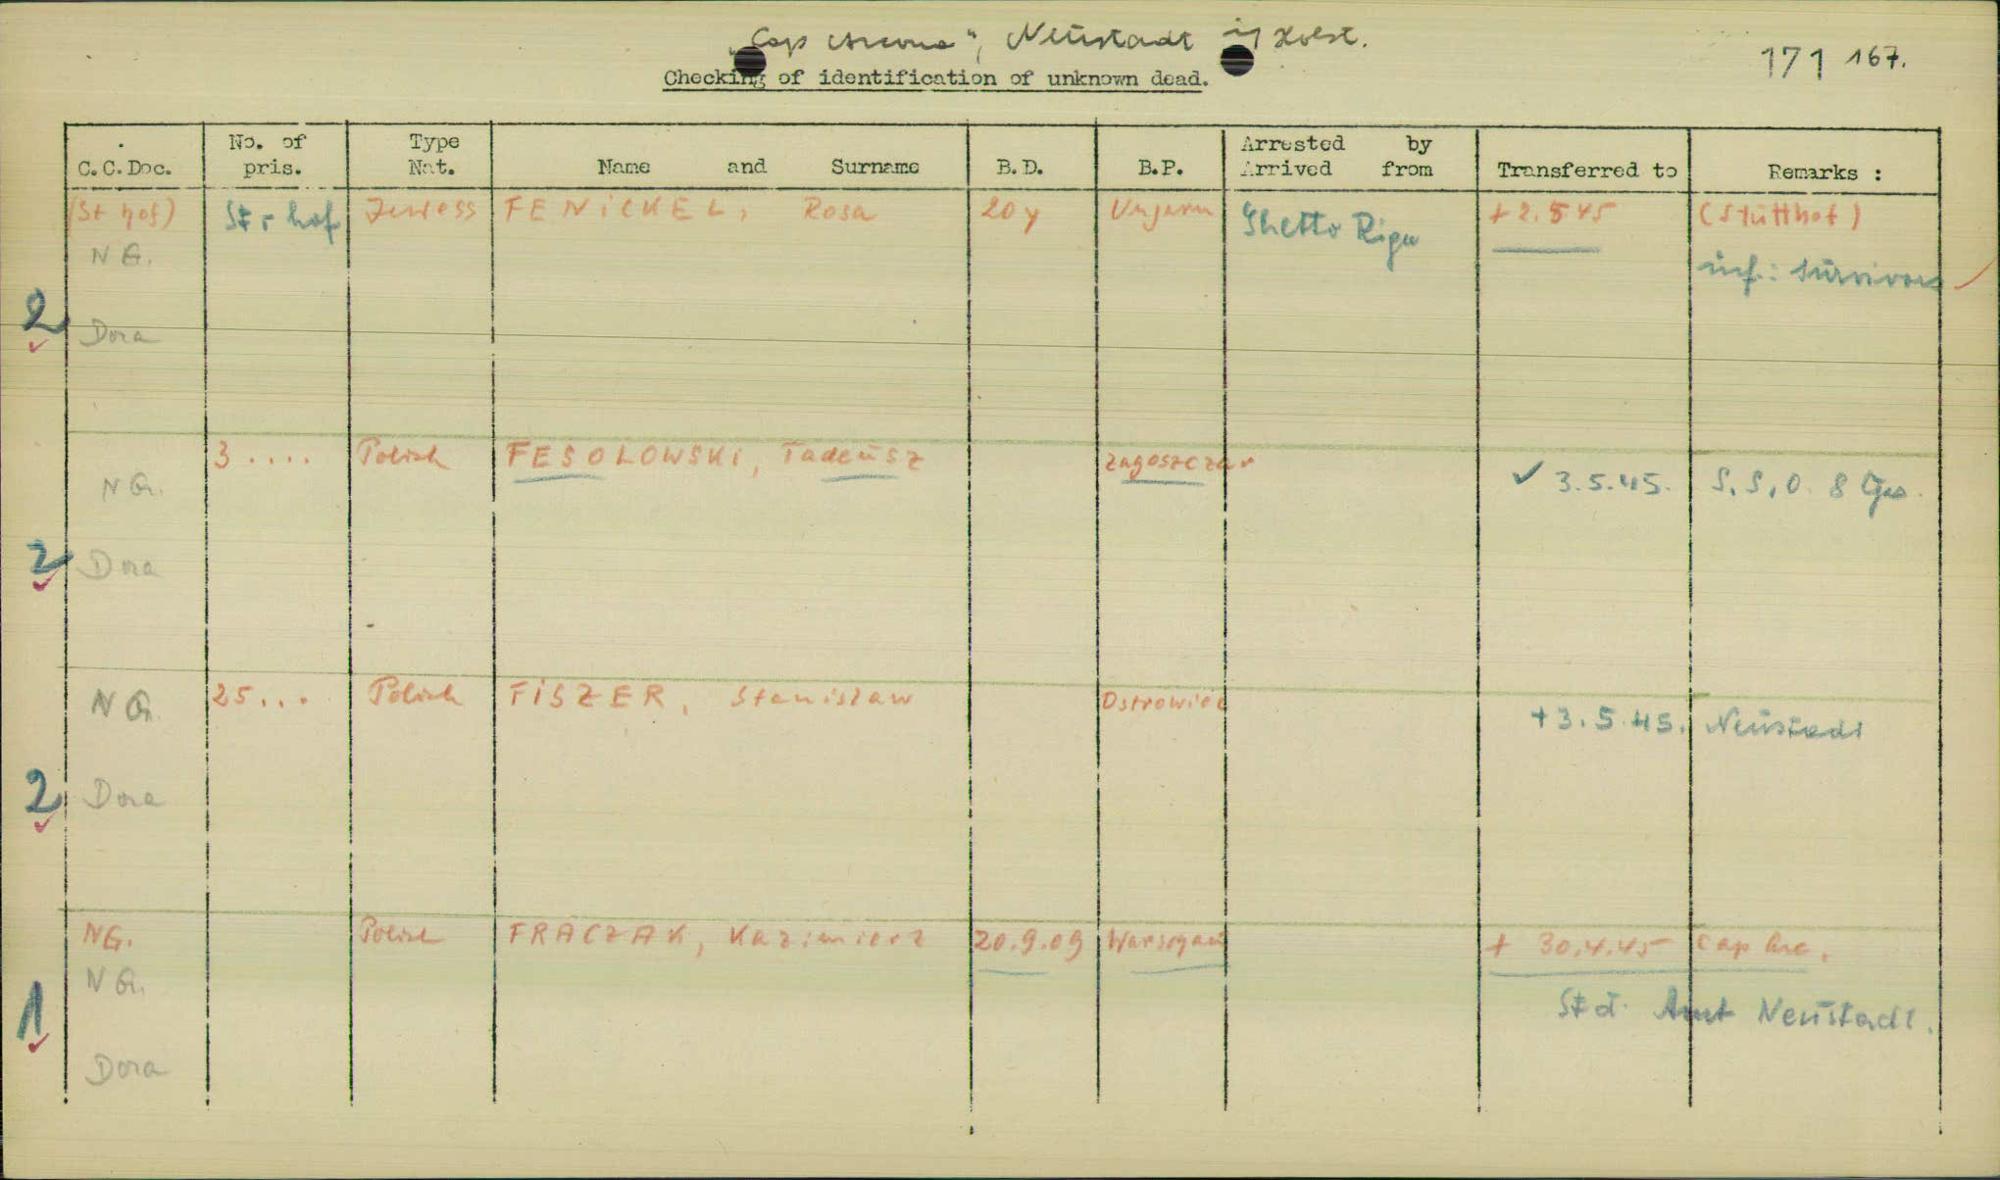 "Cap Arcona", Neustadt i/ Holst.
171 167.
Checking of identification of unknown dead.
C.C.Doc. No. of pris. Type Nat. Name and Surname B.D. B.P. Arrested by Arrived from Transferred to Remarks :
(St hof) St. hof Jewess FENICKEL, Rosa 20 y Ungarn Ghetto Riga + 2.5.45 (Stutthof)
NG. inf.: survivors
2 Dora
3 .... Polish FESOLOWSKI, Tadeusz Zagoszczar
NG. ✓ 3.5.45. S.S.O. 8 Cps.
2 Dora
NG. 25... Polish FISZER, Stanislaw Ostrowiec + 3.5.45. Neustadt
2 Dora
NG. Polish FRACZAK, Kazimierz 20.9.09 Warschau + 30.4.45 Cap Arc.
NG. St. d. Amt Neustadt.
1 Dora